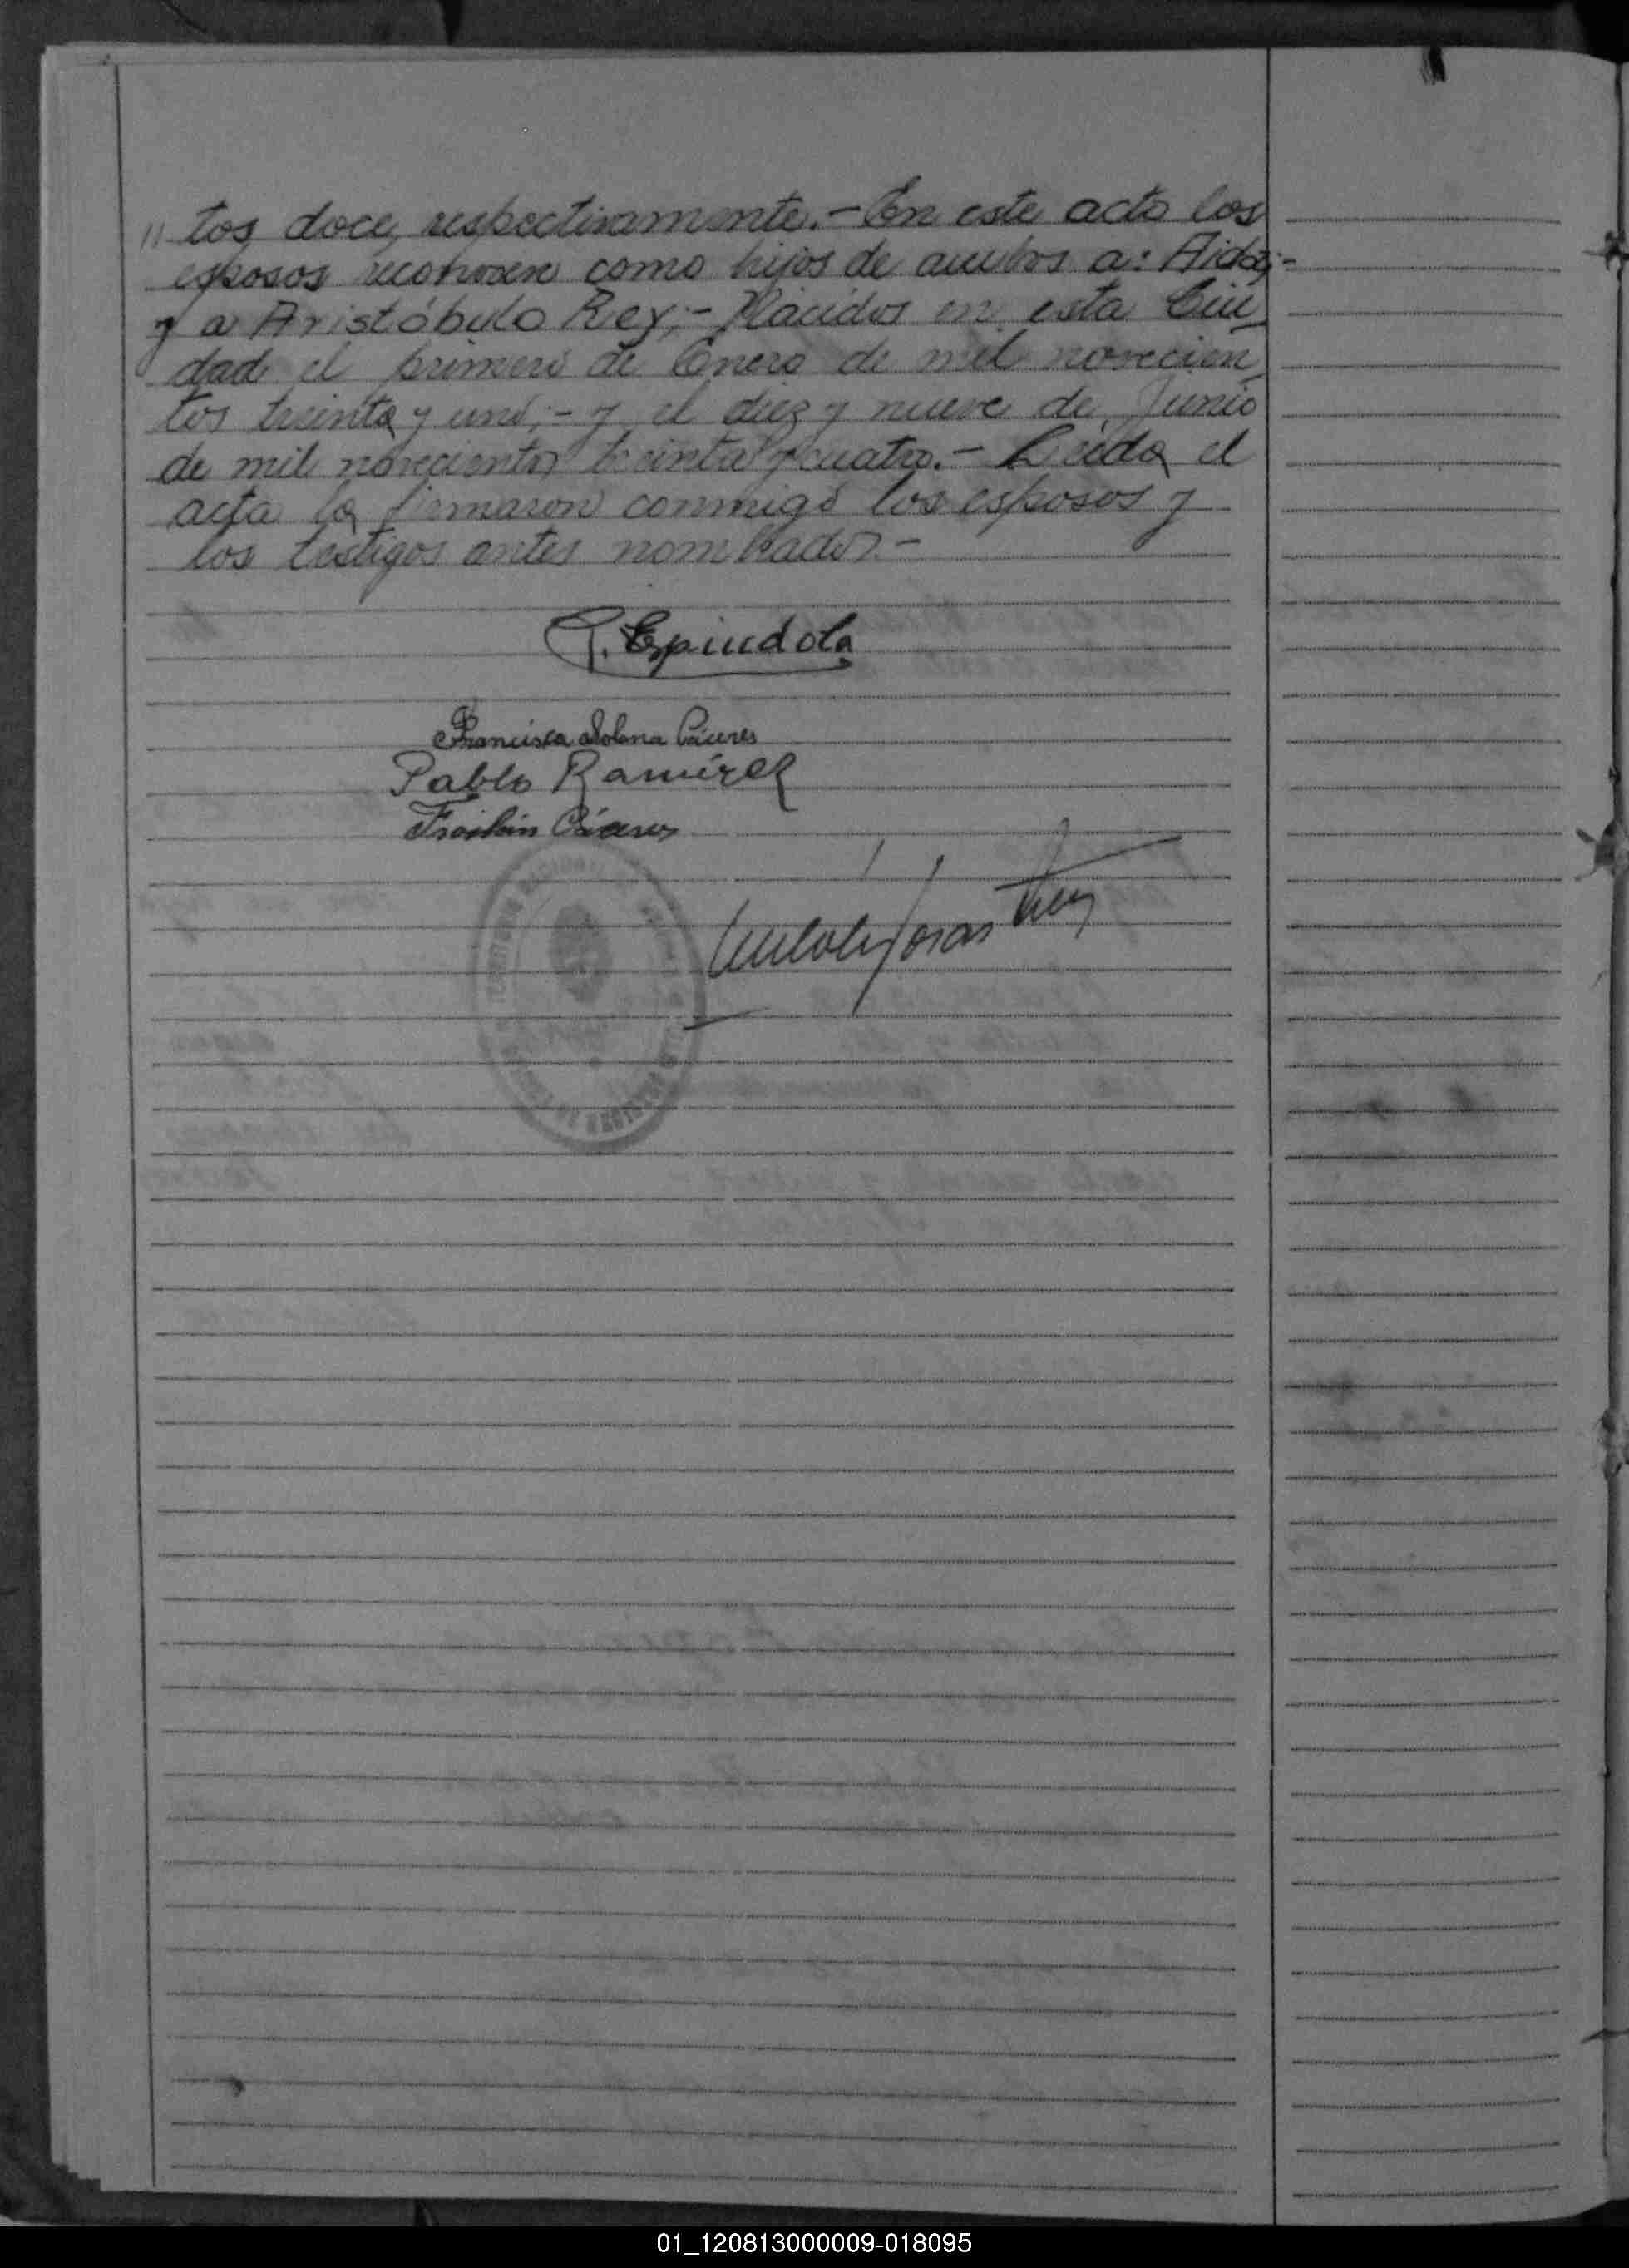 " tos doce, respectivamente.- En este acto los
esposos reconocen como hijos de ambos a: Aida;-
y a Aristóbulo Rey;- Nacidos en esta Ciu
dad el primero de Enero de mil novecien
tos treinta y uno;- y el diez y nueve de Junio
de mil novecientos treinta y cuatro.- Leída el
acta la firmaron conmigo los esposos y
los testigos antes nombrados.-
Espindola
Francisca Solana Cáceres
Pablo Ramírez
Froilán Cáceres
01_120813000009-018095